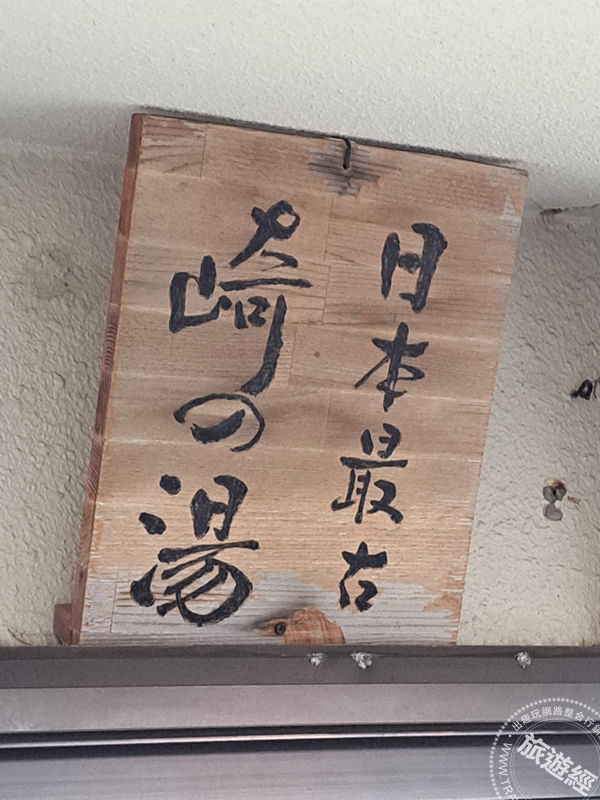 日本最古
崎の湯
出趣玩網路整合行銷
旅遊經
WWW.TRA